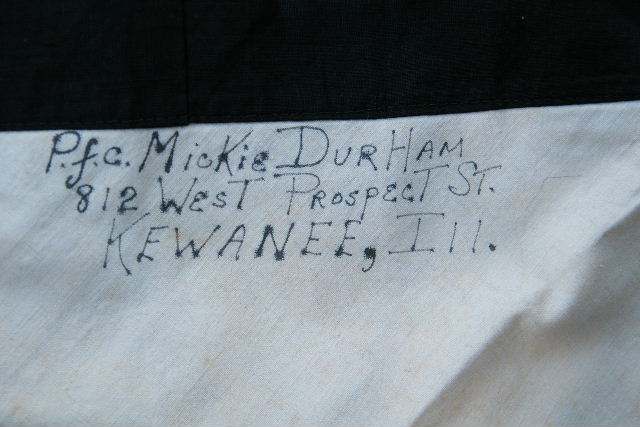 P.f.c. Mickie Durham
812 West Prospect St.
Kewanee, Ill.